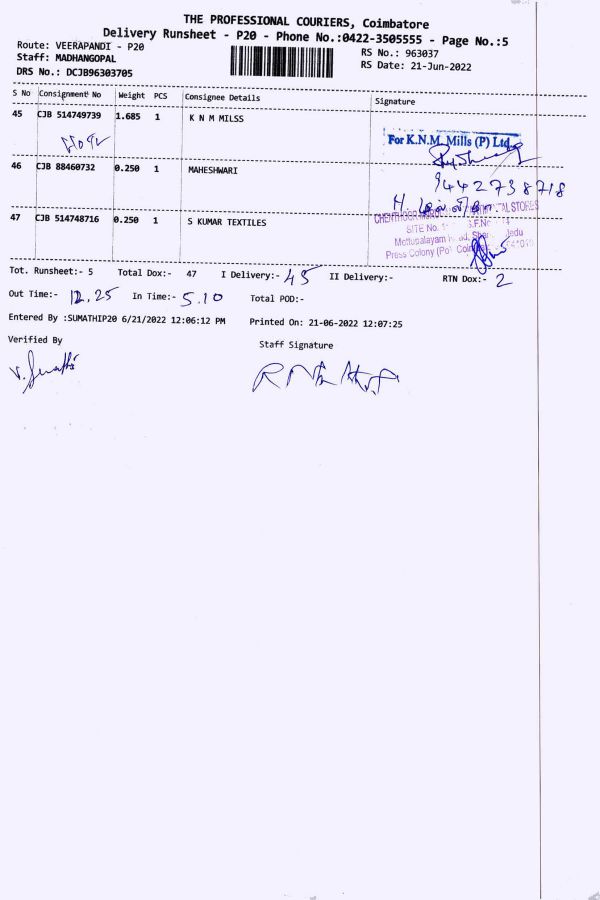 THE PROFESSIONAL COURIERS, Coimbatore
Delivery Runsheet - P20 - Phone No.:0422-3505555 - Page No.:5
Route: VEERAPANDI - P20
RS No.: 963037
Staff: MADHANGOPAL
RS Date: 21-Jun-2022
DRS No.: DCJB96303705
S No Consignment No Weight PCS Consignee Details Signature
45 CJB 514749739 1.685 1 K N M MILSS
For K.N.M. Mills (P) Ltd.,
46 CJB 88460732 0.250 1 MAHESHWARI
9442738718
47 CJB 514748716 0.250 1 S KUMAR TEXTILES
SITE No.
Mettupalayam
Press Colony (Po)
Tot. Runsheet:- 5 Total Dox:- 47 I Delivery:- 45 II Delivery:- RTN Dox:- 2
Out Time:- 12.25 In Time:- 5.10 Total POD:-
Entered By :SUMATHIP20 6/21/2022 12:06:12 PM Printed On: 21-06-2022 12:07:25
Verified By
Staff Signature